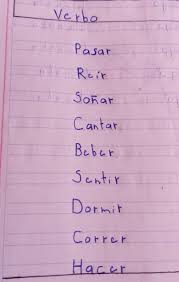 Verbo
Pasar
Reir
Soñar
Cantar
Beber
Sentir
Dormir
Correr
Hacer